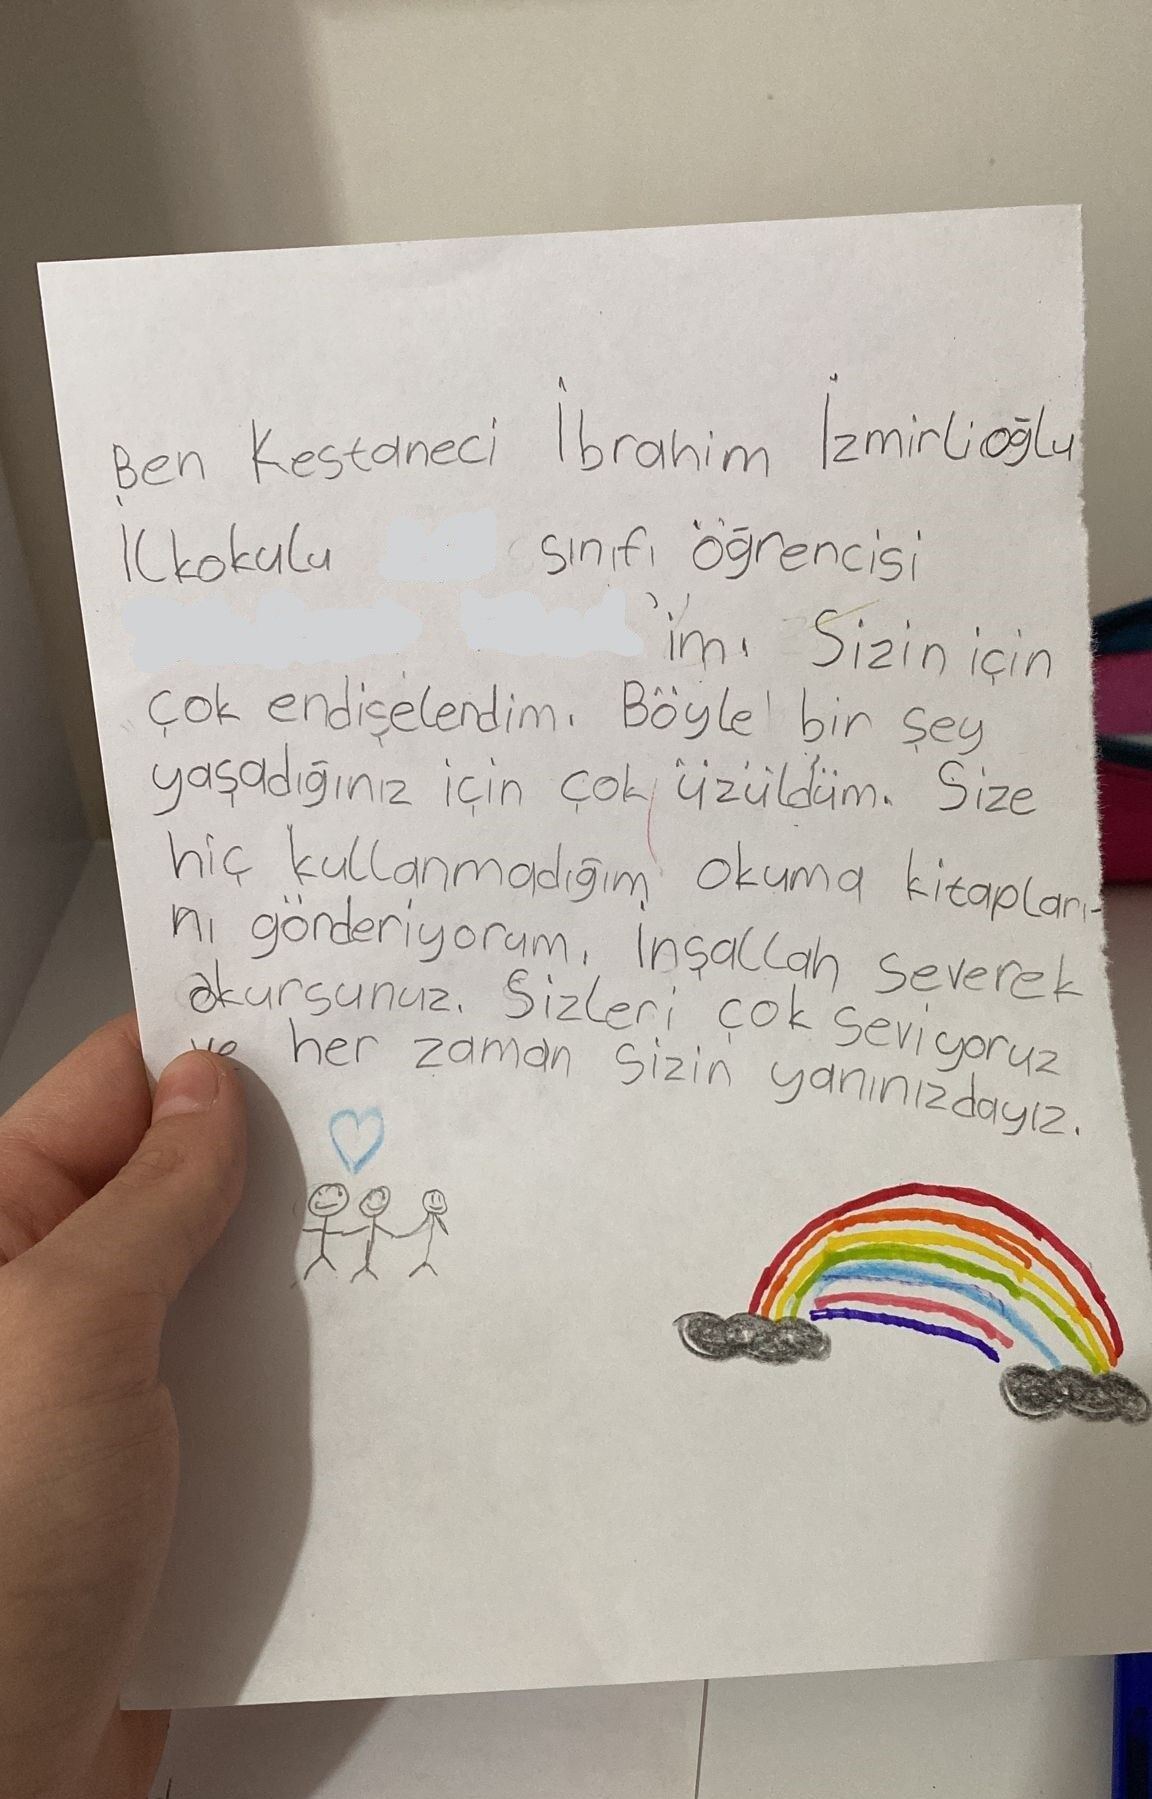 Ben Kestaneci İbrahim İzmirlioğlu
İlkokulu sınıfı öğrencisi
'im. Sizin için
çok endişelendim. Böyle bir şey
yaşadığınız için çok üzüldüm. Size
hiç kullanmadığım okuma kitapları-
nı gönderiyorum. İnşallah severek
okursunuz. Sizleri çok seviyoruz
ve her zaman sizin yanınızdayız.